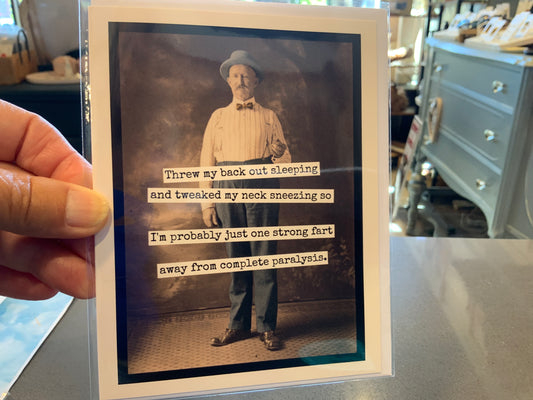 Threw my back out sleeping
and tweaked my neck sneezing so
I'm probably just one strong fart
away from complete paralysis.